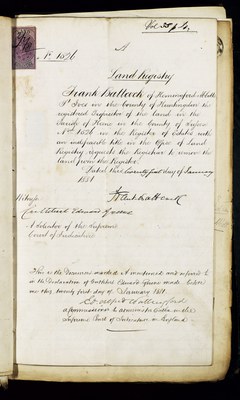 A
No. 1526
Land Registry
Frank Battcock of Hemmingford Abbotts
St. Ives in the County of Huntingdon the
registered Proprietor of the Land in the
Parish of Herne in the County of
No. 1526 in the Register of Estates with
an indefeasible title in the Office of Land
Registry, requests the Registrar to remove the
land from the Register
Dated this twenty first day of January
1881
Frank Battcock
Witness
Edward
A Solicitor of the Supreme
Court of Judicature
This is the Document marked A mentioned and referred to
in the Declaration of Cuthbert Edward made before
me this twenty first day of January 1881.
a Commissioner to administer Oaths in the
Supreme Court of Judicature in England